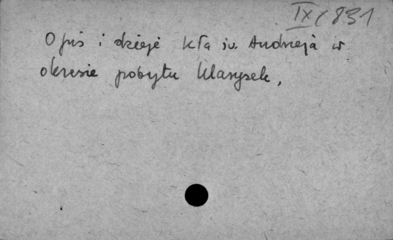 IX/831
Opis i dzieje kła św. Andrzeja w
okresie pobytu Klarysek,